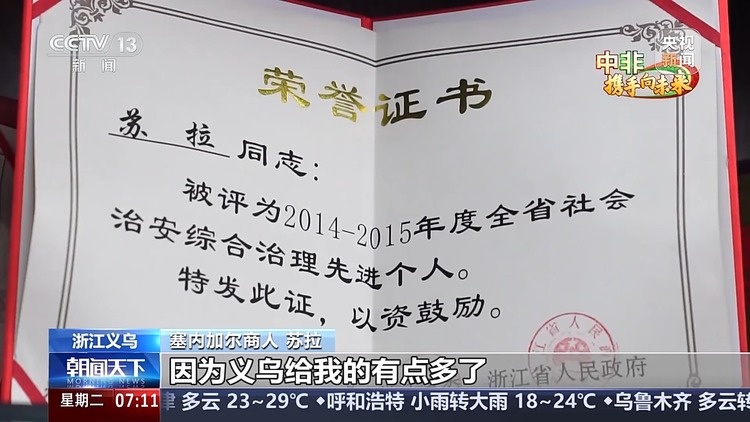 CCTV 13
新闻
央视
新闻
中非
携手向未来
荣誉证书
苏 拉 同志：
被评为2014-2015年度全省社会
治安综合治理先进个人。
特发此证，以资鼓励。
浙江省人民政府
浙江义乌
塞内加尔商人 苏拉
朝闻天下
MORNING NEWS
因为义乌给我的有点多了
星期二 07:11 津 多云 23~29℃ 呼和浩特 小雨转大雨 18~24℃ 乌鲁木齐 多云转